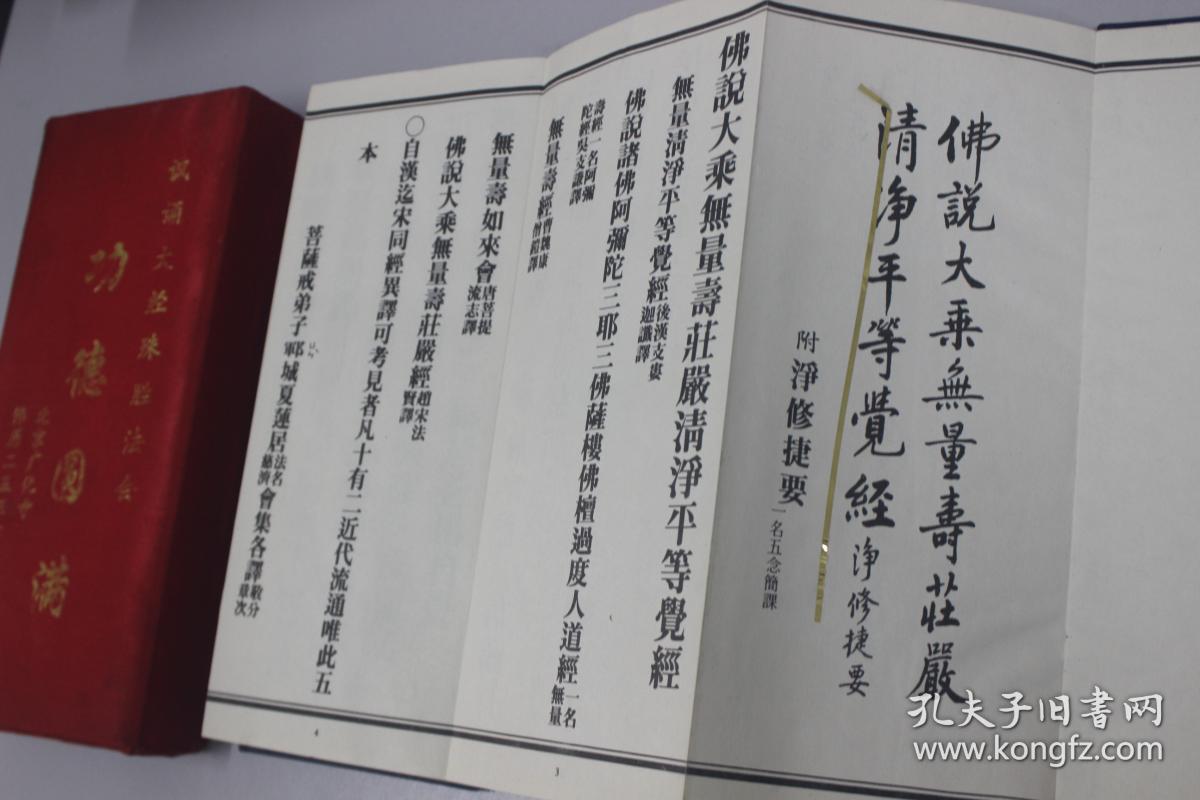 佛說大乘無量壽莊嚴
清淨平等覺經 淨修捷要
附 淨修捷要 一名五念簡課
佛說大乘無量壽莊嚴清淨平等覺經
無量清淨平等覺經 後漢支婁迦讖譯
佛說諸佛阿彌陀三耶三佛薩樓佛檀過度人道經 一名無量
壽經一名阿彌陀經吳支謙譯
無量壽經 曹魏康僧鎧譯
3
無量壽如來會 唐菩提流志譯
佛說大乘無量壽莊嚴經 趙宋法賢譯
○自漢迄宋同經異譯可考見者凡十有二近代流通唯此五
本
菩薩戒弟子鄆城夏蓮居 法名慈濟 會集各譯敬分章次
4
誦大經殊勝法会
功德圆满
北京广化寺
佛历二五五
孔夫子旧书网
www.kongfz.com